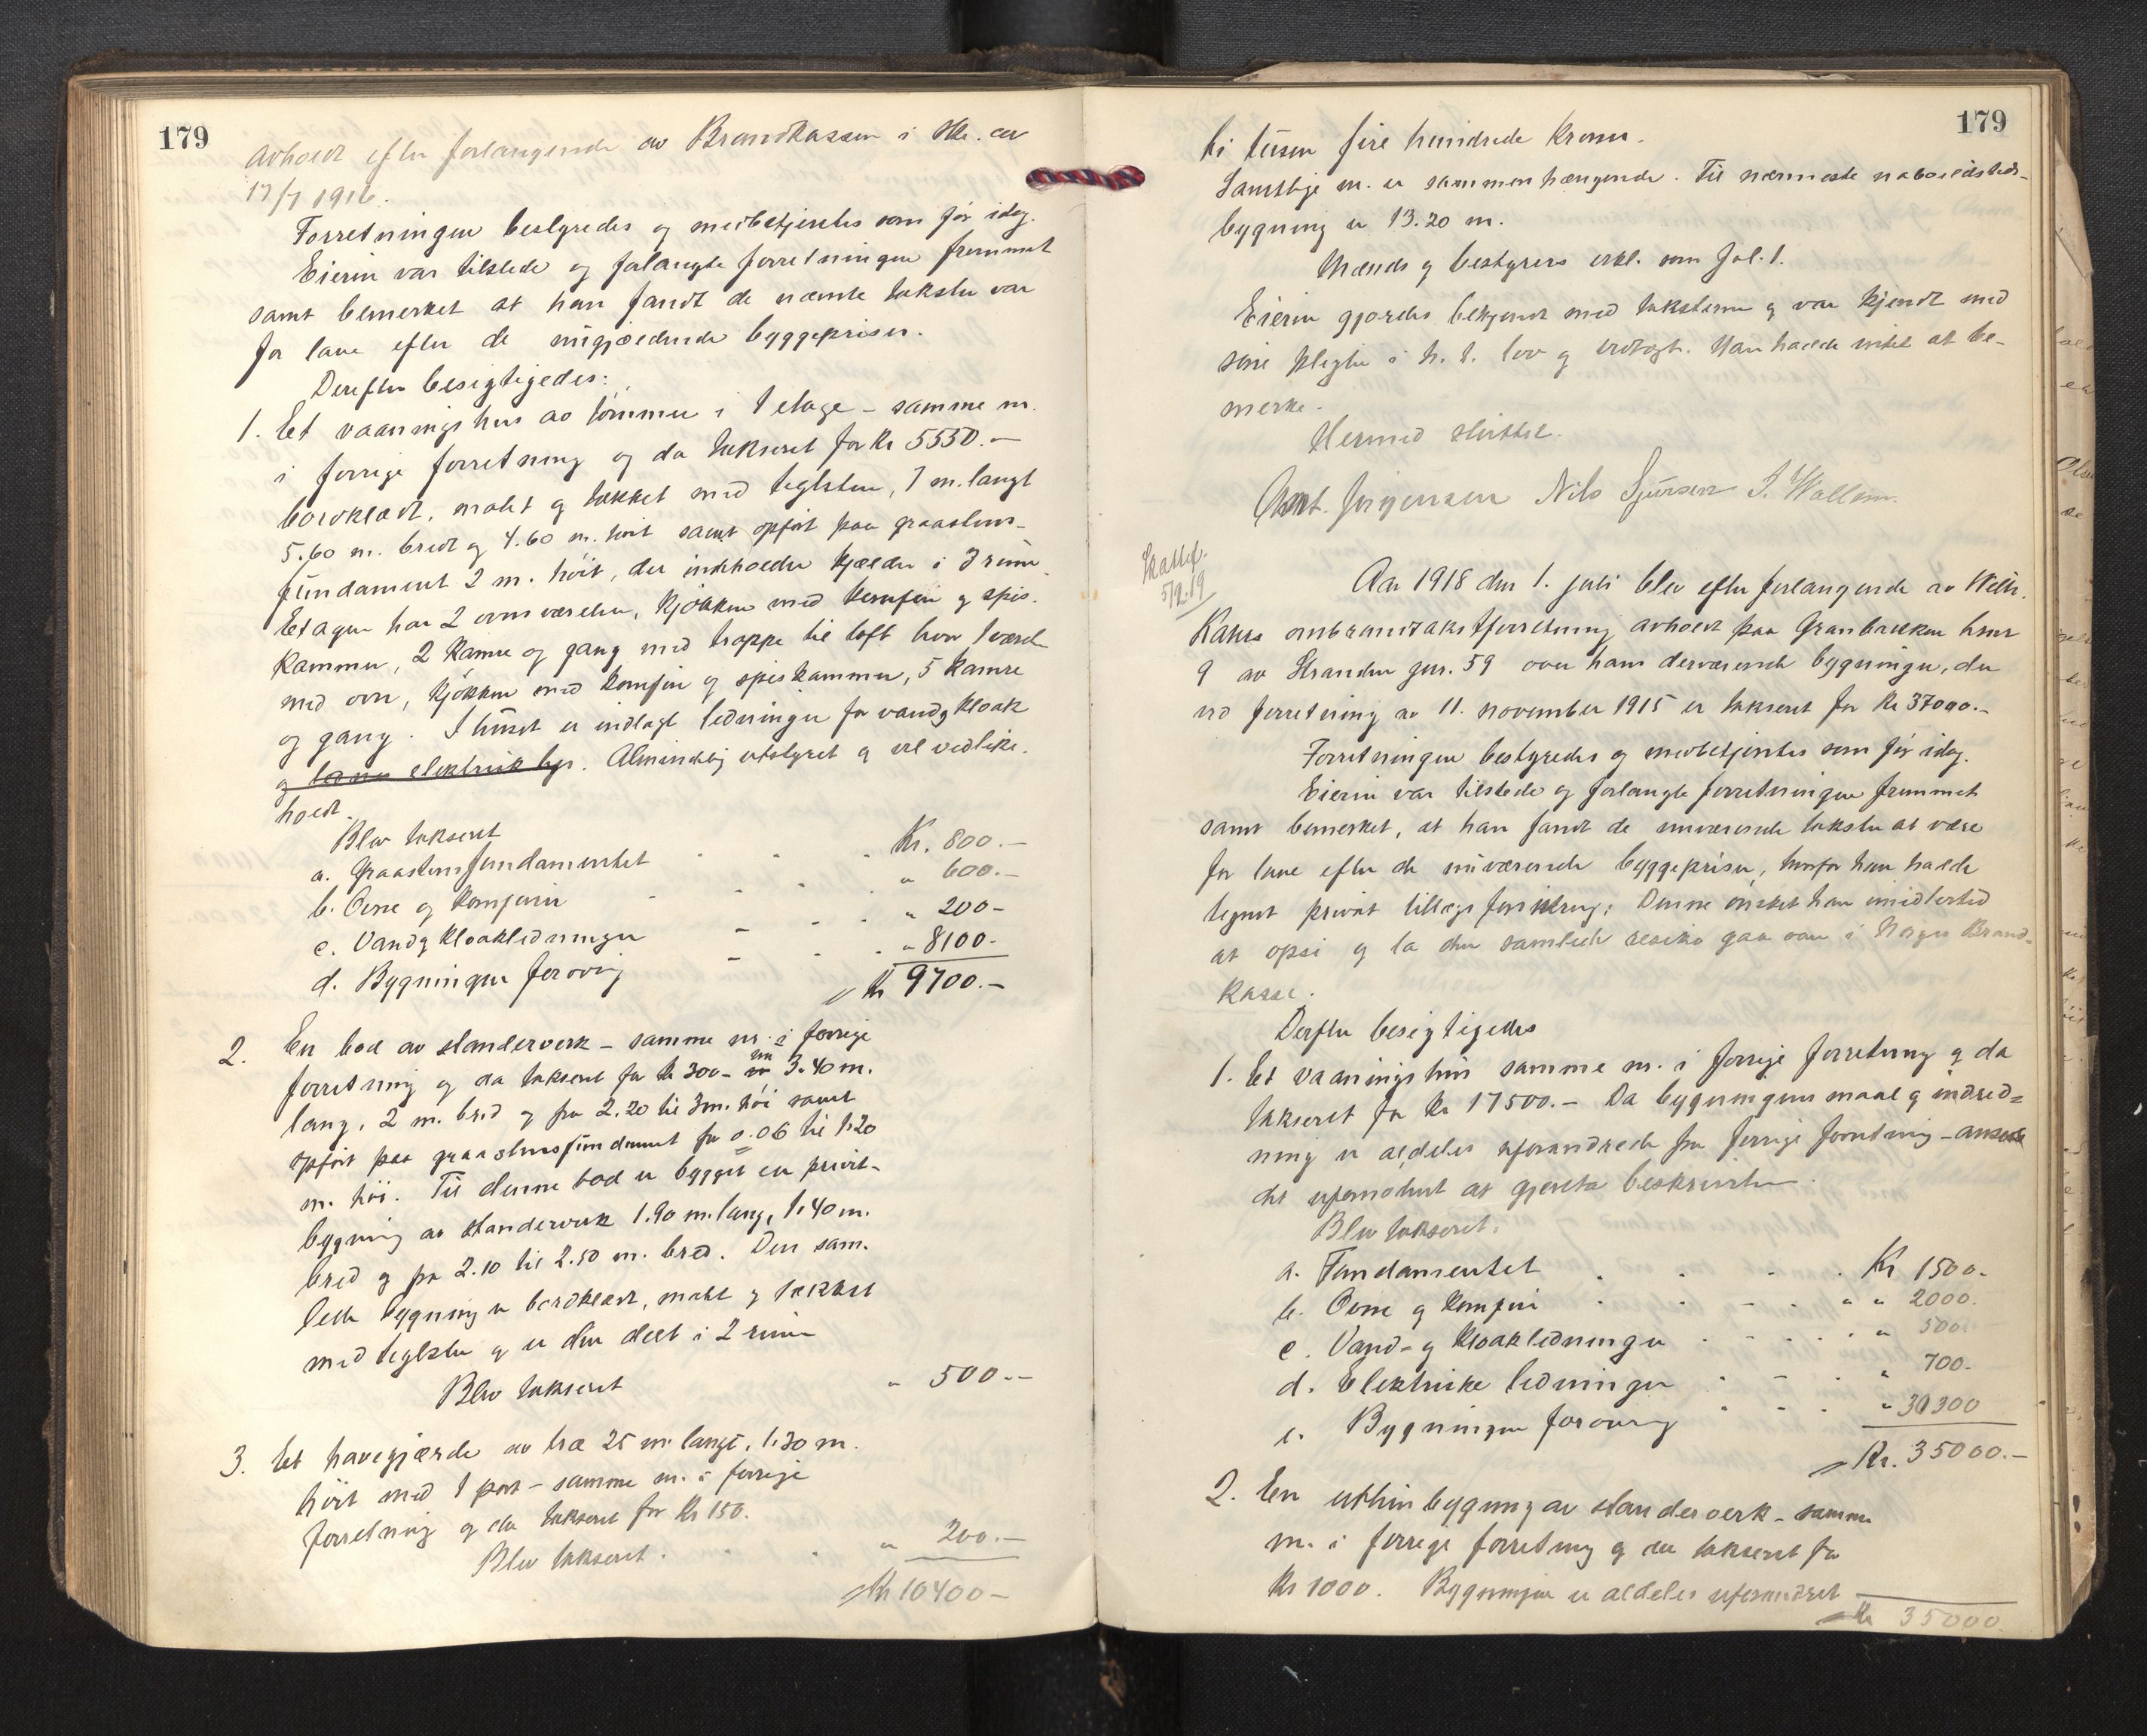 179
avholdt efter forlangende av Brandkassen i skr. av
17/7 1916.
Forretningen bestyredes og medbetjentes som før idag.
Eieren var tilstede og forlangte forretningen fremmet
samt bemerket at han fandt de nævnte takster var
for lave efter de nugjældende byggepriser.
Derefter besigtigedes:
1. Et vaaningshus av tømmer i 1 etage - samme nr.
i forrige forretning og da takseret for Kr 5550.-
bordklædt, malet og tækket med teglsten, 7 m. langt
5.60 m. bredt og 4.60 m. høit samt opført paa graastens-
fundament 2 m. høit, der indeholder kjælder i 3 rum
Etagen har 2 ovnsværelser, kjøkken med komfur og spis-
kammer, 2 kamre og gang med trappe til loft hvor 1 værelse
med ovn, kjøkken med komfur og spiskammer, 5 kamre
og gang. I huset er indlagt ledninger for vand og kloak
og elektrisk lys. Almindelig utstyret og vel vedlike-
holdt.
Blev takseret
a. Graastensfundamentet Kr. 800.-
b. Ovne og komfurer " 600.-
c. Vand og kloakledninger " 200-
d. Bygningen forøvrig " 8100.-
Kr 9700.-
2. En bod av standerverk - samme nr. i forrige
forretning og da takseret for kr 300- nu 3.40 m.
lang, 2 m. bred og fra 2.20 til 3 m. høi samt
opført paa graastensfundament fra 0.06 til 1.20
m. høi. Til denne bod er bygget en privet-
bygning av standerverk 1.90 m. lang, 1.40 m.
bred og fra 2.10 til 2.50 m. bred. Den sam-
lede bygning er bordklædt, malet og tækket
med teglsten og er den delt i 2 rum
Blev takseret " 500.-
3. Et havegjærde av træ 25 m. langt, 1.30 m.
høit med 1 port - samme nr. i forrige
forretning og da takseret for Kr 150.
Blev takseret " 200.-
Kr 10400-
179
ti tusen fire hundrede Kroner.
Samtlige nr. er sammenhængende. Til nærmeste naboildsteds-
bygning er 13.20 m.
Mænds og bestyrers erkl. som fol. 1.
Eieren gjordes bekjendt med taksterne og var kjendt med
sine pligter i h. t. lov og vedtægt. Han hadde intet at be-
merke.
Hermed sluttet.
Chr. Jørgensen Nils Sjursen J. Wallem
Skattef.
5/2.19
Aar 1918 den 1. juli blev efter forlangende av Wilh.
Kahrs ombrandtakstforretning avholdt paa Granbakken bnr
9 av Stranden gnr. 59 over hans derværende bygninger, der
ved forretning av 11. november 1915 er takseret for Kr 37000.-
Forretningen bestyredes og medbetjentes som før idag.
Eieren var tilstede og forlangte forretningen fremmet
samt bemerket, at han fandt de nuværende takster at være
for lave efter de nuværende byggepriser, hvorfor han hadde
tegnet privat tillægsforsikring. Denne ønsket han imidlertid
at opsi og la den samlede resiko gaa over i Norges Brand-
kasse.
Derefter besigtigedes
1. Et vaaningshus samme nr. i forrige forretning og da
takseret for Kr 17500.- Da bygningens maal og indred-
ning er aldeles uforandrede fra forrige forretning - ansees
det ufornødent at gjenta beskrivelsen.
Blev takseret:
a. Fundamentet Kr 1500.
b. Ovne og komfur " " 2000.
c. Vand- og kloakledninger " 500.
d. Elektriske ledninger " 700.
e. Bygningen forøvrig " 30300
Kr. 35000.-
2. En uthusbygning av standerverk - samme
nr. i forrige forretning og da takseret for
Kr 1000. Bygningen er aldeles uforandret
Kr 35000